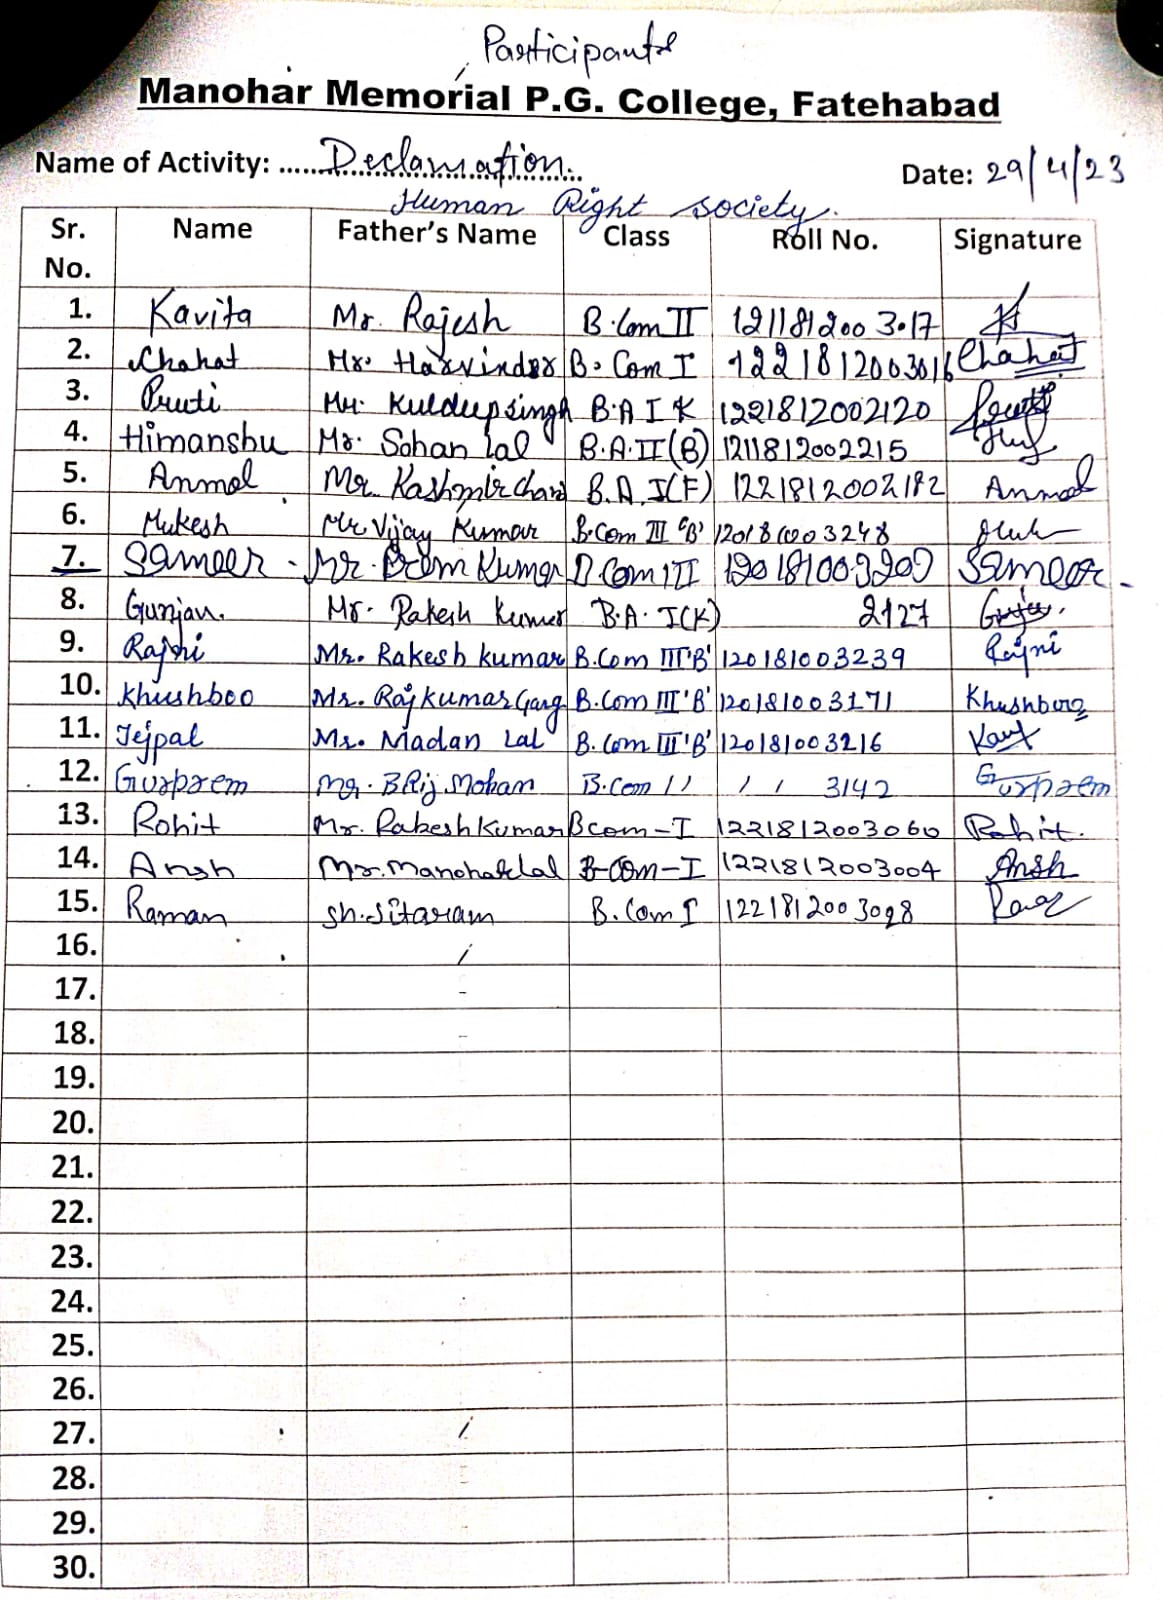 Participants
Manohar Memorial P.G. College, Fatehabad
Name of Activity: ......Declamation...
Date: 29/4/23
Human Right society.
Sr. No. Name Father's Name Class Roll No. Signature
1. Kavita Mr. Rajesh B.Com II 1211812003017
2. Chahat Mr. Harvinder B. Com I 1221812003016 Chahat
3. Pruti Mr. Kuldeep singh B.A I K 1221812002120
4. Himanshu Mr. Sohan Lal B.A.II(B) 1211812002215
5. Anmol Mr. Kashmir chand B.A I(F) 1221812002182 Anmol
6. Mukesh Mr. Vijay Kumar B.Com III 'B'
7. Sameer - Mr. Prem Kumar B Com III Sameer -
8. Gunjan. Mr. Rakesh Kumar B.A. I(K) 2127
9. Rajni Mr. Rakesh kumar B.Com III 'B' 120181003239 Rajni
10. Khushboo Mr. Rajkumar Garg B.Com III 'B' 120181003171 Khushboo
11. Tejpal Mr. Madan Lal B.Com III 'B' 120181003216
12. Gurprem Mr. BRij Mohan B.Com 11 / / 3142 Gurprem
13. Rohit Mr. Rakesh Kumar Bcom-I 1221812003060 Rohit.
14. Ansh Mr. Manohar lal B-COM-I 1221812003004 Ansh
15. Raman Sh. Sitaram B.Com I 1221812003098
16.
17.
18.
19.
20.
21.
22.
23.
24.
25.
26.
27.
28.
29.
30.